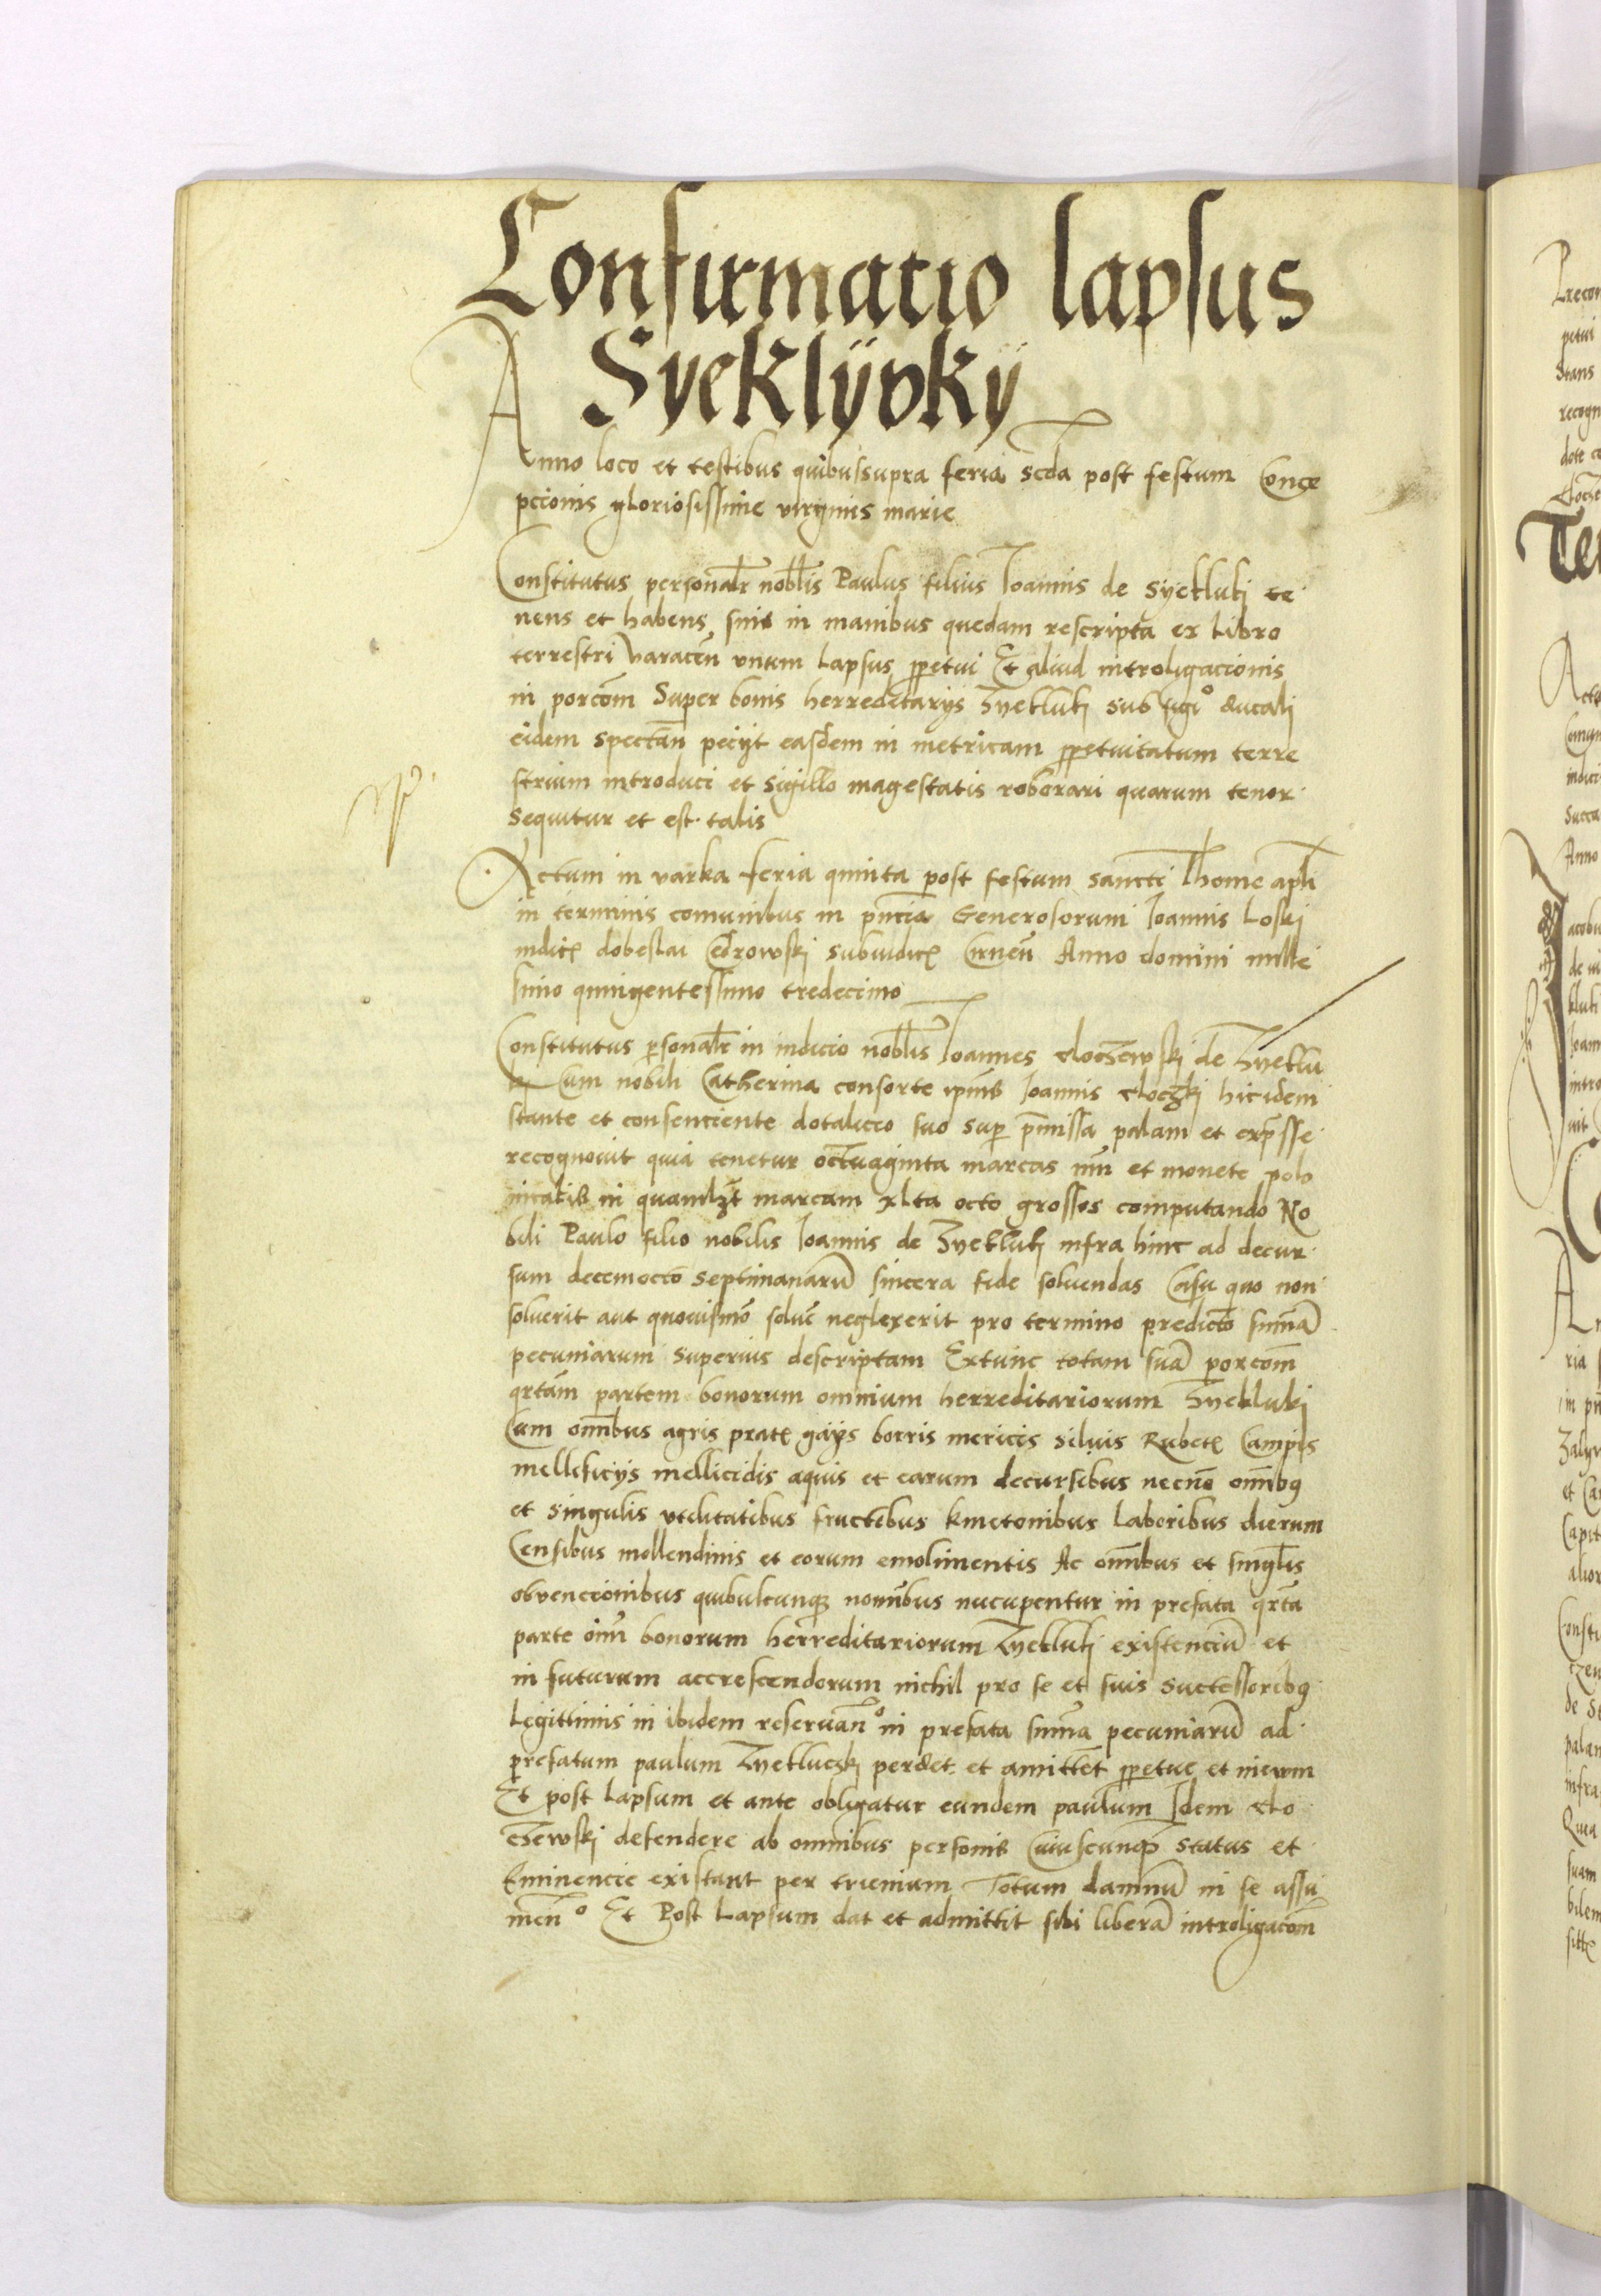 Confirmatio lapsus
Syeklÿvkÿ
Anno loco et testibus quibussupra feria scda post festum Conce
pcionis gloriosissime virginis marie
Constitutus personalr noblis Paulus filius Joannis de Syekluki te
nens et habens suis in manibus quedam rescripta ex Libro
terrestri Varacen unum Lapsus ppetui Et aliud introligacionis
in porcom Super bonis herreditarys Zyekluki sub sigo ducali
eidem spectan peciyt easdem in metricam ppetuitatum terre
strium introduci et sigillo magestatis roborari quarum tenor
sequitur et est talis
Actum in varka feria quinta post festum sancti Thome apli
in terminis comunibus in pncia Generosorum Joannis Loski
iudicis dobeslai subiudicis Cirnen Anno domini mille
simo quingentessimo tredecimo
Constitutus psonalr in iudicio noblis Joannes cloczewski de Zyeklu
ki Cum nobili Catherina consorte ipius Joannis cloczki hic idem
stante et consenciente dotalicio suo sup pmissa palam et expsse
recognovit quia tenetur octuaginta marcas nm et monete polo
nicalis in quamlzt marcam xlta octo grossos computando No
bili Paulo filio nobilis Joannis de Zyekluki infra hinc ad decur
sum decemocto septimanaru sincera fide solvendas Casu quo non
solverit aut quovismo solve neglexerit pro termino predicto suma
pecuniarum superius descriptam Extunc totam sua porcom
qrtam partem bonorum omnium herreditariorum Zyekluki
Cum omibus agris prat gays borris mericis silvis Rubet Campis
mellificiys mellicidis aquis et earum decursibus necno omibq
et singulis utilitatibus fructibus kmetonibus Laboribus dierum
Censibus mollendinis et eorum emolimentis Ac omibus et singlis
obvencionibus quibuscunqz nomibus nucupentur in prefata qrta
parte oim bonorum herreditariorum Zyekluki existenciu et
in futurum accrescendorum nichil pro se et suis successoribq
Legittimis in ibidem reservano in prefata suma pecuniaru ad
prefatum paulum Zyekluczki perdet et amittet ppetue et in ewm
Et post Lapsum et ante obligatur eundem paulum Idem clo
czewski defendere ab omnibus personis Cuiuscunqz status et
Eminencie existant per trienium Totum damnu in se assu
meno Et Post Lapsum dat et admittit sibi libera introligacom